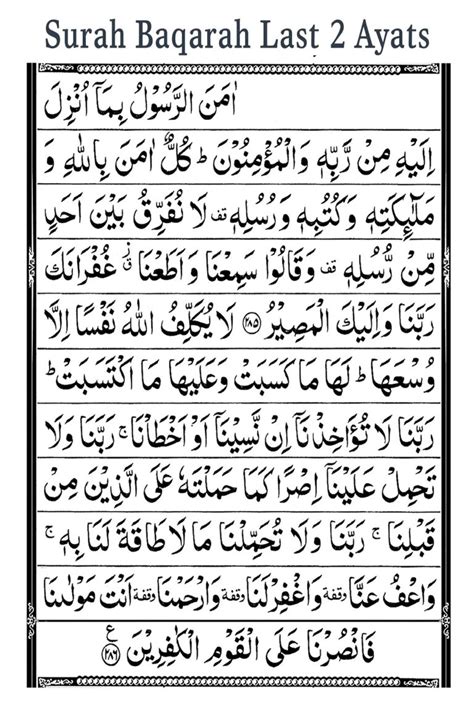 Surah Baqarah Last 2 Ayats
اٰمَنَ الرَّسُوْلُ بِمَاۤ اُنْزِلَ
اِلَيْهِ مِنْ رَّبِّهٖ وَالْمُؤْمِنُوْنَ ؕ كُلٌّ اٰمَنَ بِاللّٰهِ وَ
مَلٰٓئِكَتِهٖ وَكُتُبِهٖ وَرُسُلِهٖ قف لَا نُفَرِّقُ بَيْنَ اَحَدٍ
مِّنْ رُّسُلِهٖ قف وَقَالُوْا سَمِعْنَا وَاَطَعْنَا ق غُفْرَانَكَ
رَبَّنَا وَاِلَيْكَ الْمَصِيْرُ ۝۲۸۵ لَا يُكَلِّفُ اللّٰهُ نَفْسًا اِلَّا
وُسْعَهَا ؕ لَهَا مَا كَسَبَتْ وَعَلَيْهَا مَا اكْتَسَبَتْ ؕ
رَبَّنَا لَا تُؤَاخِذْنَاۤ اِنْ نَّسِيْنَاۤ اَوْ اَخْطَاْنَا ۚ رَبَّنَا وَلَا
تَحْمِلْ عَلَيْنَاۤ اِصْرًا كَمَا حَمَلْتَهٗ عَلَى الَّذِيْنَ مِنْ
قَبْلِنَا ۚ رَبَّنَا وَلَا تُحَمِّلْنَا مَا لَا طَاقَةَ لَنَا بِهٖ ۚ
وَاعْفُ عَنَّا وقفة وَاغْفِرْ لَنَا وقفة وَارْحَمْنَا وقفة اَنْتَ مَوْلٰىنَا
فَانْصُرْنَا عَلَى الْقَوْمِ الْكٰفِرِيْنَ ۝۲۸۶ ع